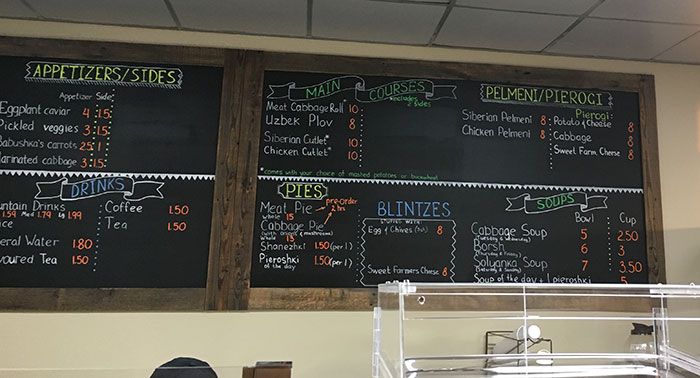 APPETIZERS/SIDES
Appetizer Side:
Eggplant caviar 4 1.5
Pickled veggies 3 1.5
Babushka's carrots 2.5 1
Marinated cabbage 3 1.5
DRINKS
untain Drinks
1.59 Med 1.79 Lg 1.99
ice
eral Water 1.80
voured Tea 1.50
Coffee 1.50
Tea 1.50
MAIN COURSES
includes 2 sides
Meat Cabbage Roll* 10
Uzbek Plov 8
Siberian Cutlet* 10
Chicken Cutlet* 10
*comes with your choice of mashed potatoes or buckwheat
PELMENI/PIEROGI
Siberian Pelmeni 8
Chicken Pelmeni 8
Pierogi:
Potato & Cheese 8
Cabbage 8
Sweet Farm Cheese 8
PIES
Meat Pie pre-order
whole 15 2 hrs
Cabbage Pie
(with onions & mushroom)
whole 15
Shanezhki 1.50 (per 1)
Piroshki 1.50 (per 1)
of the day
BLINTZES
STUFFED WITH
Egg & Chives 8
Sweet Farmers Cheese 8
SOUPS
Bowl Cup
Cabbage Soup 5 2.50
(Tuesday & Wednesday)
Borsh 6 3
(Thursday & Friday)
Solyanka Soup 7 3.50
(Saturday & Sunday)
Soup of the day + 1 pieroshki 5